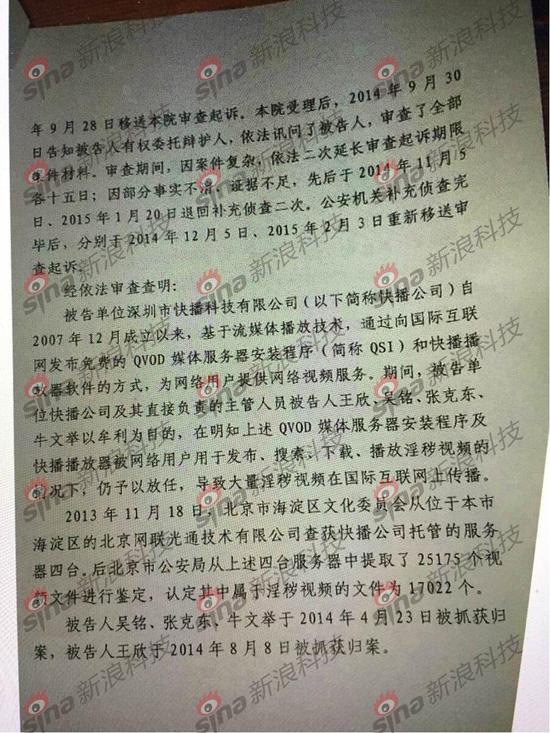 年9月28日移送本院审查起诉。本院受理后，2014年9月30
日告知被告人有权委托辩护人，依法讯问了被告人，审查了全部
案件材料。审查期间，因案件复杂，依法二次延长审查起诉期限
各十五日；因部分事实不清，证据不足，先后于2014年11月5
日、2015年1月20日退回补充侦查二次。公安机关补充侦查完
毕后，分别于2014年12月5日、2015年2月3日重新移送审
查起诉。
经依法审查查明：
被告单位深圳市快播科技有限公司（以下简称快播公司）自
2007年12月成立以来，基于流媒体播放技术，通过向国际互联
网发布免费的QVOD媒体服务器安装程序（简称QSI）和快播播
放器软件的方式，为网络用户提供网络视频服务。期间，被告单
位快播公司及其直接负责的主管人员被告人王欣、吴铭、张克东、
牛文举以牟利为目的，在明知上述QVOD媒体服务器安装程序及
快播播放器被网络用户用于发布、搜索、下载、播放淫秽视频的
情况下，仍予以放任，导致大量淫秽视频在国际互联网上传播。
2013年11月18日，北京市海淀区文化委员会从位于本市
海淀区的北京网联光通技术有限公司查获快播公司托管的服务
器四台。后北京市公安局从上述四台服务器中提取了25175个视
频文件进行鉴定，认定其中属于淫秽视频的文件为17022个。
被告人吴铭、张克东、牛文举于2014年4月23日被抓获归
案，被告人王欣于2014年8月8日被抓获归案。
sina新浪科技